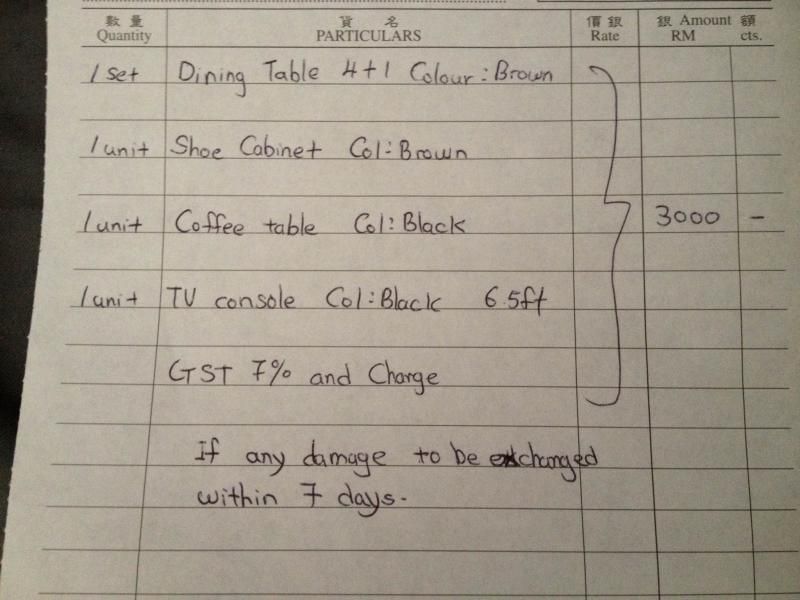 數量 貨名 價銀 銀 Amount 額
Quantity PARTICULARS Rate RM cts.
1 set Dining Table 4+1 Colour : Brown
1 unit Shoe Cabinet Col : Brown
1 unit Coffee table Col : Black 3000 -
1 unit TV console Col : Black 6.5ft
GST 7% and Charge
If any damage to be exchanged
within 7 days.